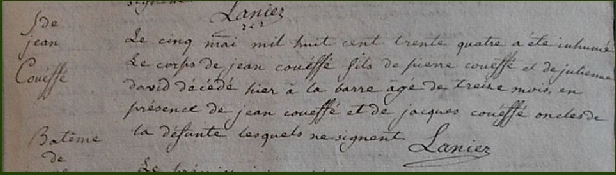 Laniez
S de
jean
Coueffé
Le cinq mai mil huit cent trente quatre a été inhumé
Le corps de jean coueffé fils de pierre coueffé et de julienne
david décédé hier à la barre agé de treize mois en
présence de jean coueffé et de jacques coueffé oncles de
la défunte lesquels ne signent
Laniez
Batême
de